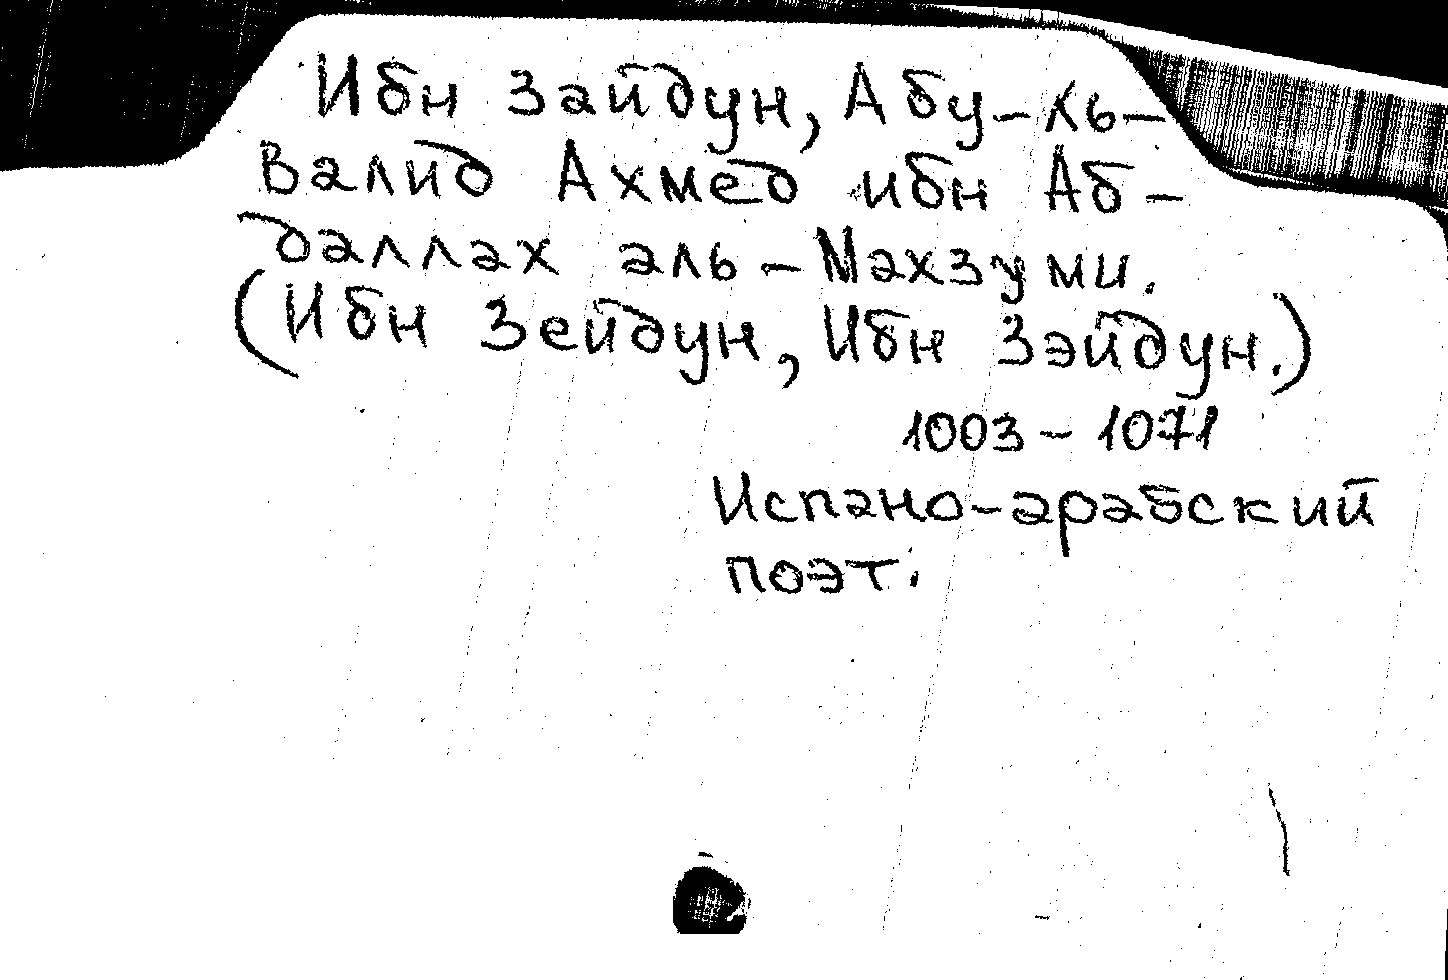 Ибн Зайдун, Абу-ль-
Валид Ахмед ибн Аб-
даллах аль-Махзуми.
(Ибн Зейдун, Ибн Зэйдун.)
1003-1071
Испано-арабский
поэт.